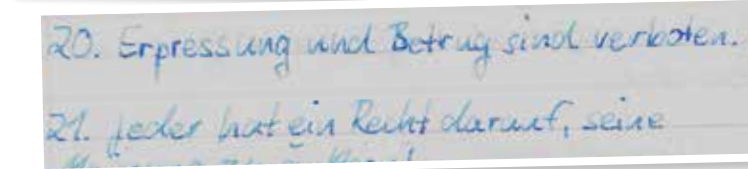 20. Erpressung und Betrug sind verboten.
21. Jeder hat ein Recht darauf, seine